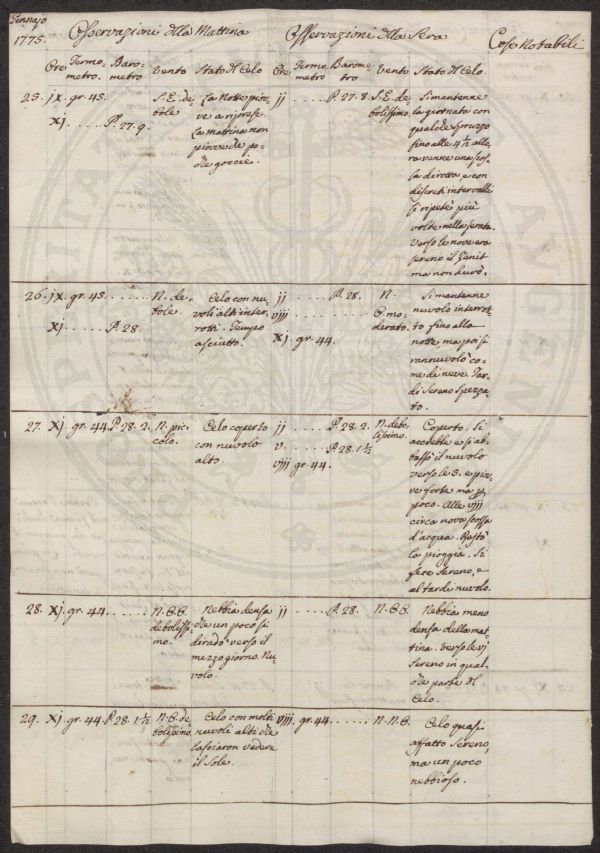 Gennajo
1775.
Osservazioni della Mattina
Osservazioni della Sera
Cose Notabili
Ore
Termo-
metro.
Baro-
metro
Vento
Stato del Celo
Ore
Termo
metro
Barome
tro
Vento
Stato del Celo.
25. jx. gr. 45.
S. E. de
bole
La Notte piov-
ve a riprese.
La Mattina non
piovve che po-
che goccie.
Xj. ..... P. 27. 9.
jj ..... P. 27. 8.
S. E. de
bolissimo.
Si mantenne
la giornata con
qualche spruzzo
fino alle 4 1/2 allo-
ra venne una scos-
sa dirotta, e con
discreti intervalli
si ripetè più
volte nella serata.
Verso le nove era
sereno il Zenit
ma non durò.
26. jx. gr. 45. ......
N. de-
bole.
Celo con nu-
voli alti inter-
rotti. Tempo
asciutto.
Xj. ...... P. 28.
jj ..... P. 28.
N.
viij ......
O. mo-
derato.
Xj. gr. 44.
Si mantenne
nuvolo interrot-
to fino alla
notte, ma poi si
rannuvolò co-
me di neve. Tar-
di Sereno spezza-
to.
27. Xj. gr. 44. P. 28. 2.
N. pic-
colo.
Celo coperto
con nuvolo
alto.
jj ..... P. 28. 2.
N. debo-
lissimo.
v. ..... P. 28. 1 1/2
viij gr. 44.
Coperto. Si
accrebbe e si ab-
bassò il nuvolo
verso le 3. e piov-
ve forte ma
poco. Alle viij
circa nova scossa
d'acqua. Restò
la pioggia. Si
fece Sereno, e
al tardi nuvolo.
28. Xj. gr. 44. .....
debolissi-
mo.
Nebbia densa
che un poco si
diradò verso il
mezzo giorno. Nu-
volo.
jj ..... P. 28.
Nebbia meno
densa della mat-
tina. Verso le vj
Sereno in qual-
che parte del
Celo.
29. Xj. gr. 44. P. 28. 1 1/2
bolissimo.
Celo con molti
nuvoli alti che
lasciaron vedere
il Sole.
viij. gr. 44. ......
Celo quasi
affatto sereno,
ma un poco
nebbioso.